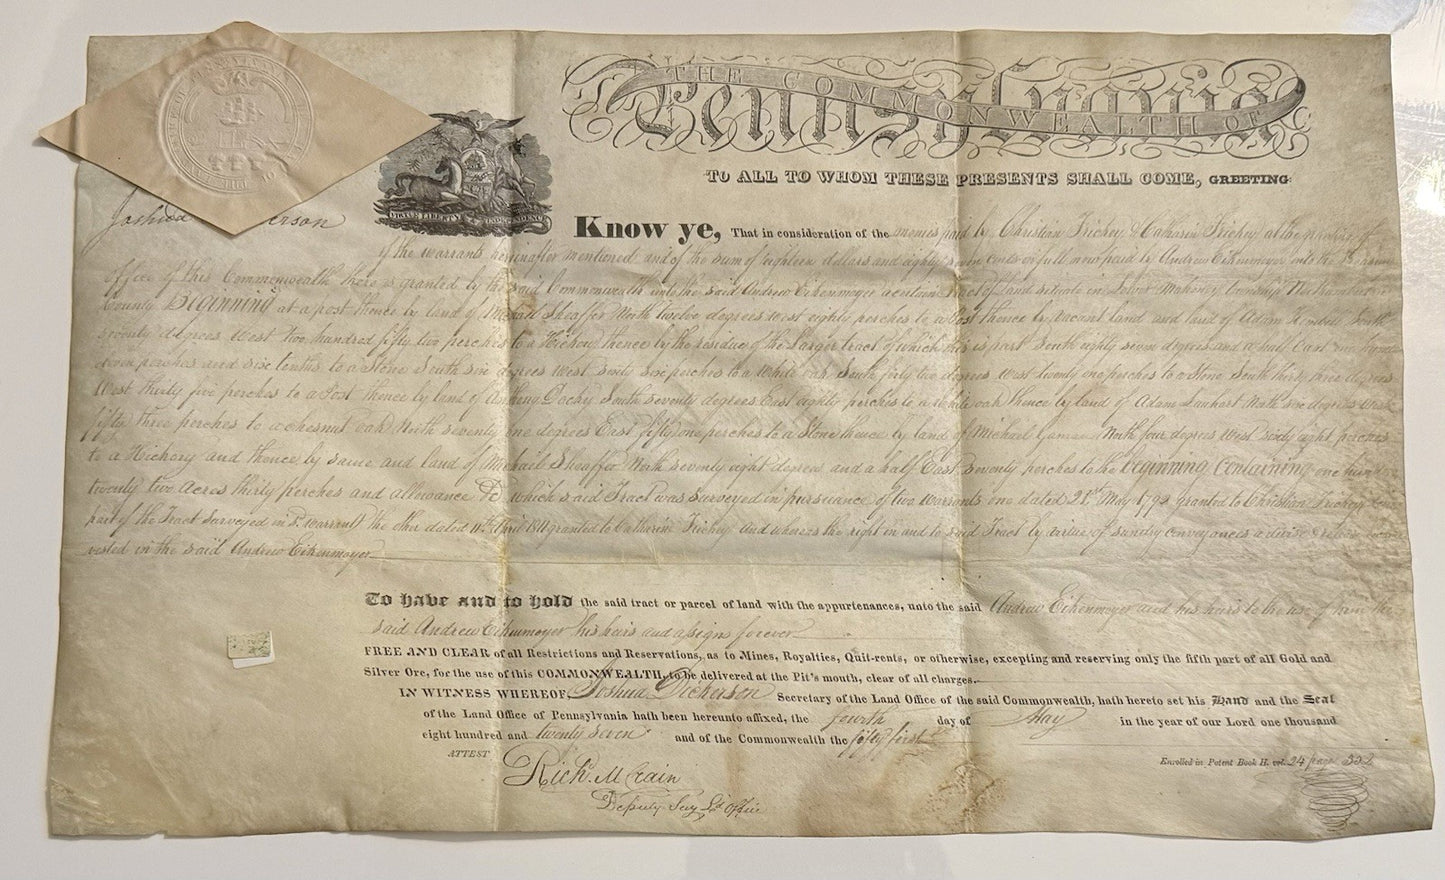 THE COMMONWEALTH OF
Pennsylvania
TO ALL TO WHOM THESE PRESENTS SHALL COME, GREETING:
VIRTUE LIBERTY INDEPENDENCE
Joshua erson
Know ye, That in consideration of the monies paid by Christian Trichey & Catharin Trichey at the of
of the warrants hereinafter mentioned and of the sum of eighteen dollars and eighty cents in full now paid by Andrew Eikenmoyer into the
office of this Commonwealth there is granted by the said Commonwealth unto the said Andrew Eikenmoyer a certain Tract of land situate in Lower Mahonoy township
County Beginning at a post thence by land of Michael Sheaffer North twelve degrees West eighty perches to a Post thence by vacant land and land of Adam South
seventy degrees West two hundred fifty two perches to a Hickory thence by the residue of the larger tract of which this is part South eighty seven degrees and a half East one
seven perches and six tenths to a Stone South six degrees West sixty six perches to a White oak South forty two degrees West twenty one perches to a Stone South thirty three degrees
West thirty five perches to a Post thence by land of Anthony South seventy degrees East eighty perches to a white oak thence by land of Adam Lenhart North six degrees West
fifty three perches to a Chesnut oak North seventy one degrees East fifty one perches to a Stone thence by land of Michael North four degrees West sixty eight perches
to a Hickory and thence by same and land of Michael Sheaffer North seventy eight degrees and a half East seventy perches to the beginning Containing one
twenty two Acres thirty perches and allowance &c which said Tract was Surveyed in pursuance of two warrants one dated 21st May 1792 granted to Christian Trichey
part of the Tract Surveyed in Pr. warrant the other dated April 1811 granted to Catharine Trichey And whereas the right in and to said Tract by virtue of sundry conveyances
vested in the said Andrew Eikenmoyer
To have and to hold the said tract or parcel of land with the appurtenances, unto the said Andrew Eikenmoyer and his heirs to the use of him the
said Andrew Eikenmoyer his heirs and assigns forever
FREE AND CLEAR of all Restrictions and Reservations, as to Mines, Royalties, Quit-rents, or otherwise, excepting and reserving only the fifth part of all Gold and
Silver Ore, for the use of this COMMONWEALTH, to be delivered at the Pit's mouth, clear of all charges.
IN WITNESS WHEREOF, Joshua Dickerson Secretary of the Land Office of the said Commonwealth, hath hereto set his Hand and the Seal
of the Land Office of Pennsylvania hath been hereunto affixed, the fourth day of May in the year of our Lord one thousand
eight hundred and twenty seven and of the Commonwealth the fifty first
ATTEST
Richd. M. Crain
Deputy Secy Ld Office
Enrolled in Patent Book H. vol. 24 page 332